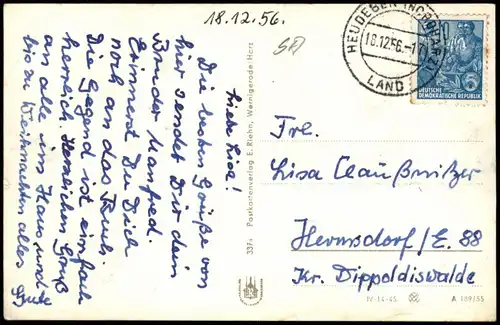 18.12.56.
Liebe Lisa!
Die besten Grüße von
hier sendet Dir dein
Bruder Manfred.
Erinnerst Du Dich
noch an das
Die Gegend ist einfach
herrlich. Herzlichen Gruß
an alle im Haus und
bis zu Weihnachten alles
Gute
337a Postkartenverlag E. Riehn, Wernigerode-Harz
HEUDEBER
18.12.56.-17
LAND
DEUTSCHE
DEMOKRATISCHE REPUBLIK
Frl.
Lisa Claußnitzer
Hermsdorf/E. 88
Kr. Dippoldiswalde
IV-14-45 A 169/55